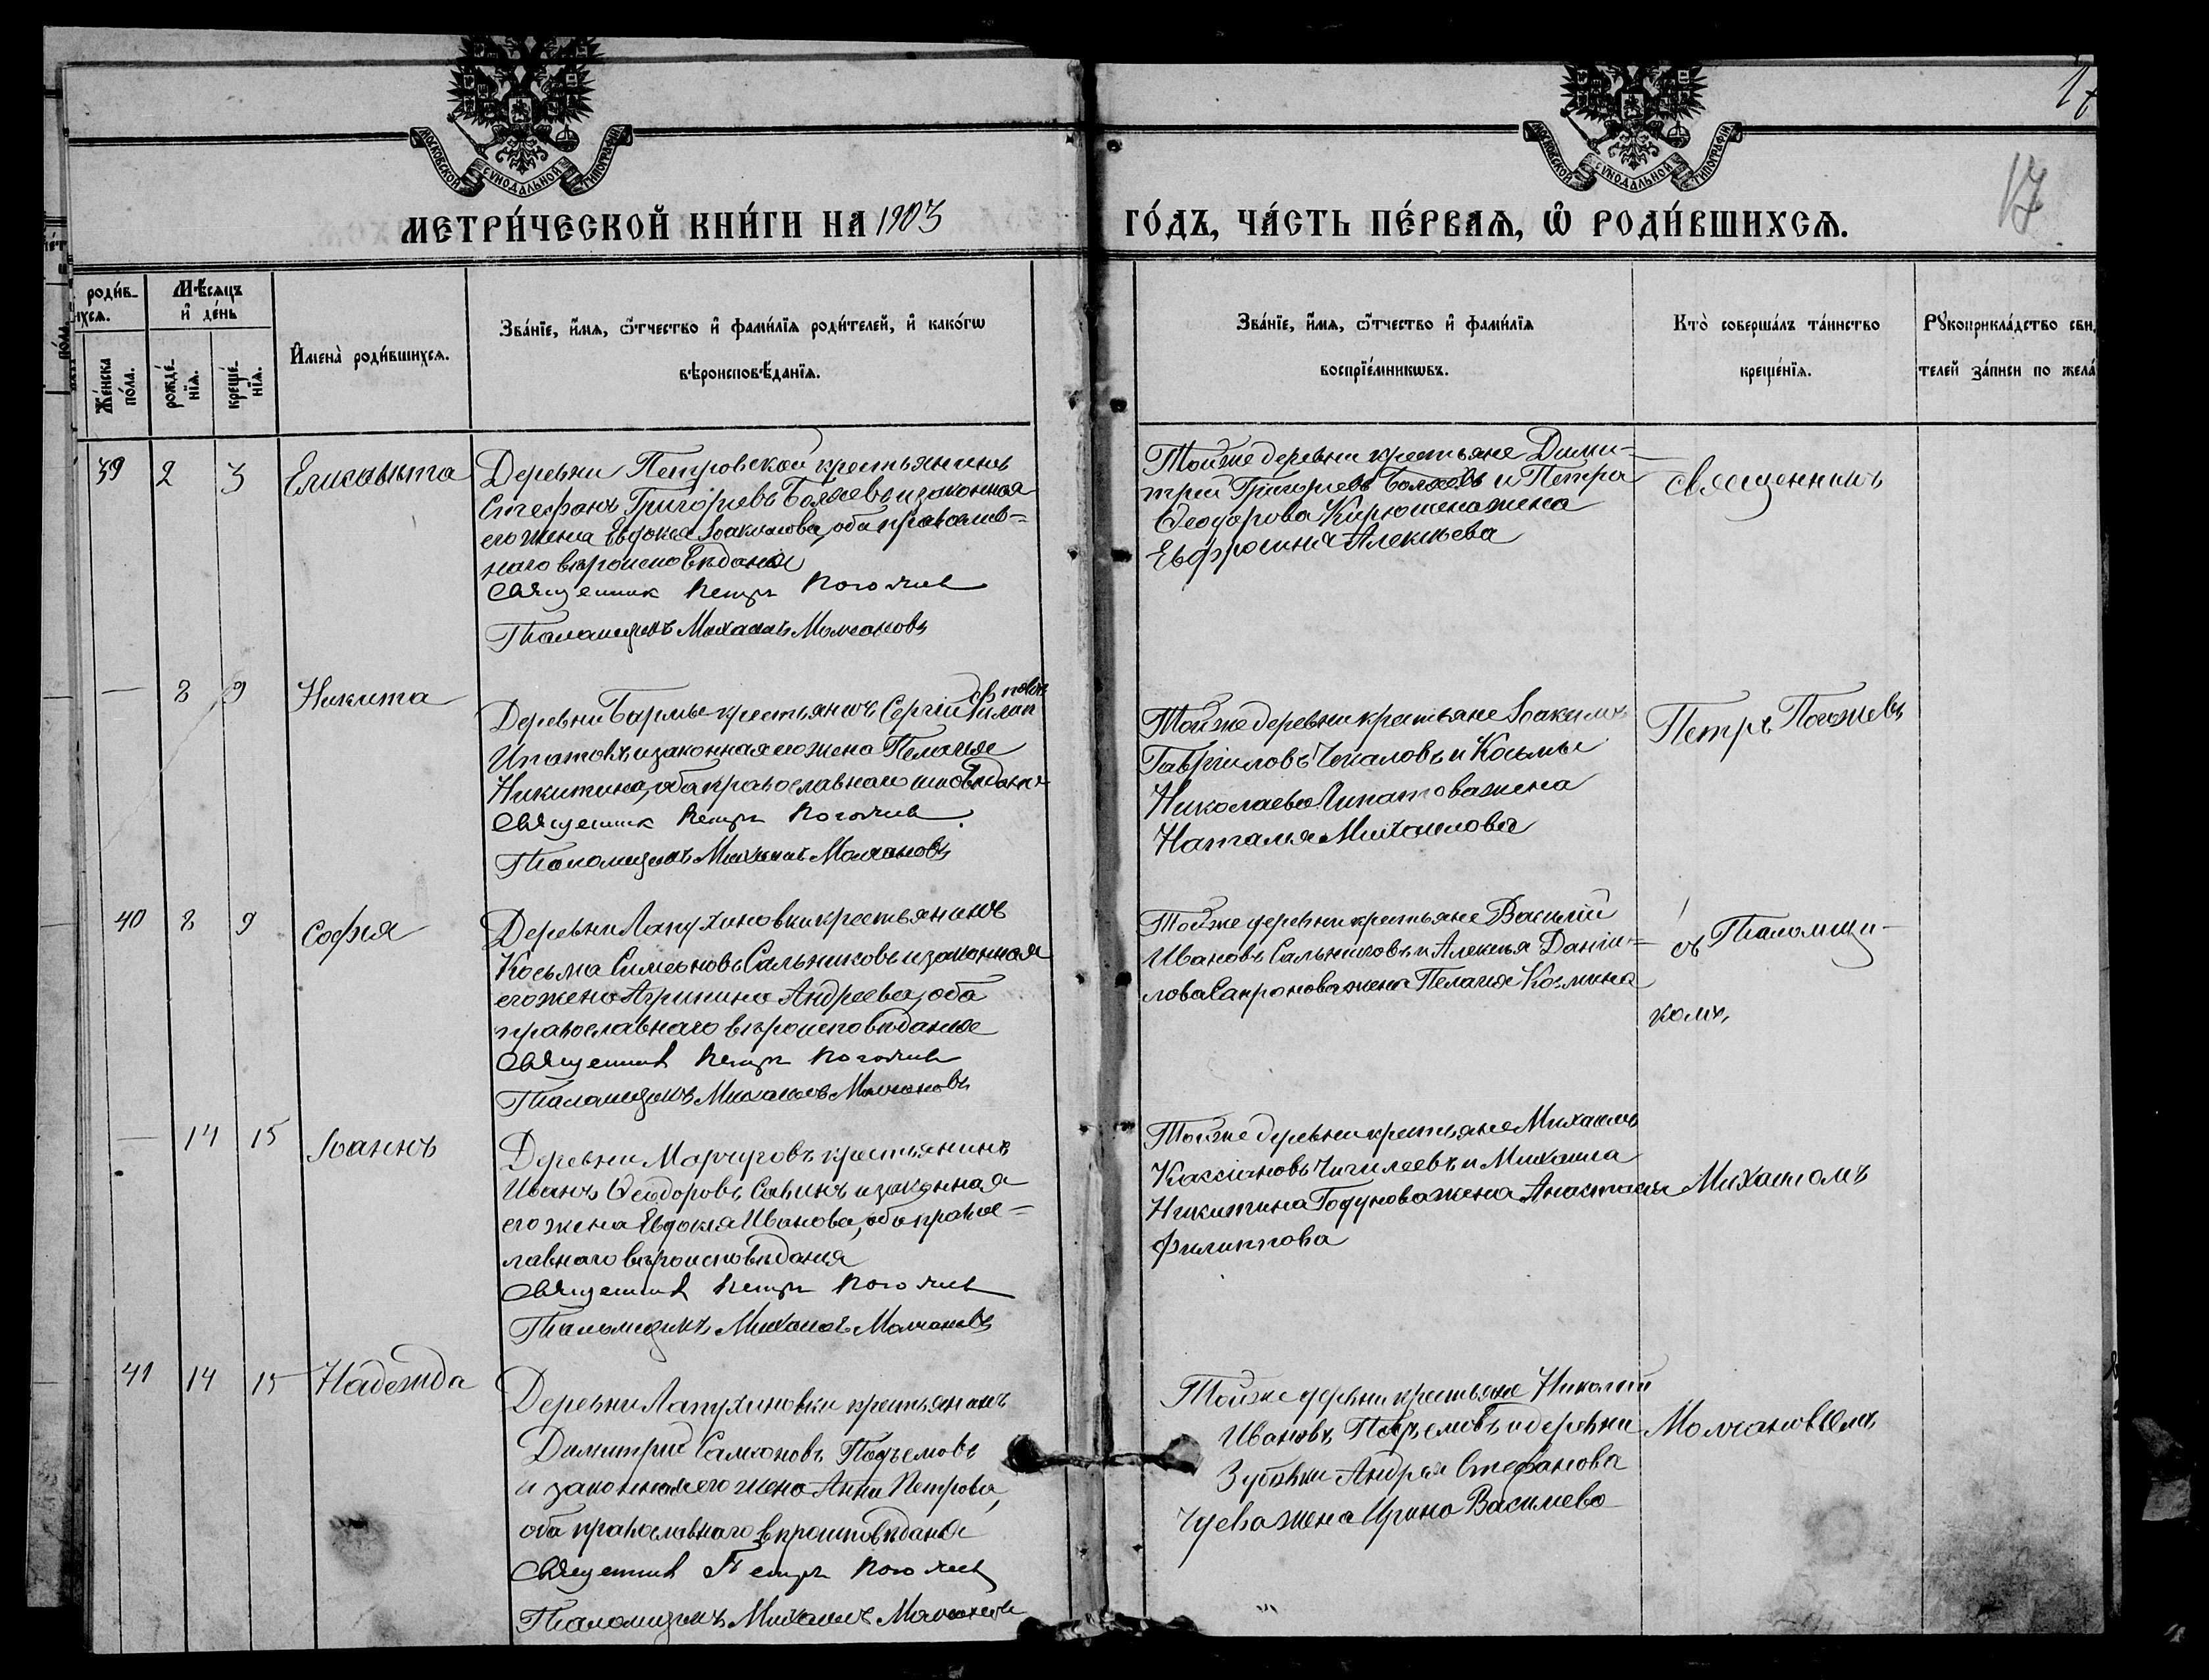 17
17
МОСКОВСКОЙ СѴНОДАЛЬНОЙ ТИПОГРАФІИ
МОСКОВСКОЙ СѴНОДАЛЬНОЙ ТИПОГРАФІИ
МЕТРИ́ЧЕСКОЙ КНИ́ГИ НА 1903
ГО́ДЪ, ЧА́СТЬ ПЕ́РВАѦ, Ѽ РОДИ́ВШИХСѦ.
роди́в-
ихсѧ.
Мѣ́сѧцъ
и҆ де́нь
Же́нска
по́ла.
рожде́-
нїѧ.
креще́-
нїѧ.
И҆мена̀ роди́вшихсѧ.
Зва́нїе, и҆́мѧ, ѻ҆́тчество и҆ фами́лїѧ роди́телей, и҆ како́гѡ
вѣроисповѣ́данїѧ.
Зва́нїе, и҆́мѧ, ѻ҆́тчество и҆ фами́лїѧ
воспрїе́мникѡвъ.
Кто̀ соверша́лъ та́инство
креще́нїѧ.
Рꙋкоприкла́дство сви,
телей за́писи по жела́
39 2 3 Елисавета
Деревни Петровской крестьянинъ
Стефанъ Григорьевъ и законная
его жена Евдокія Іоакимова, оба православ-
наго вѣроисповѣданія
Священник Петръ Погожев
Псаломщикъ Михаилъ Молчановъ
Тойже деревни крестьяне Дими-
трій Григорьевъ и Петра
Ѳеодорова жена
Евфросинія Алексѣева
священникъ
— 8 9 Никита
Деревни Бармы крестьянинъ Сергій
Ипатовъ и законная его жена Пелагія
Никитина, оба православнаго исповѣданія
Священник Петръ Погожев
Псаломщикъ Михаилъ Молчановъ
Тойже деревни крестьяне Іоакимъ
Гавріиловъ Чекаловъ и Косьмы
Николаева Ипатова жена
Наталья Михаилова
Петръ Погожевъ
40 8 9 София
Деревни Лапухиновки крестьянинъ
Косьма Симеоновъ Сальниковъ и законная
его жена Агрипина Андреева, оба
православнаго вѣроисповѣданія
Священник Петръ Погожев
Псаломщикъ Михаилъ Молчановъ
Тойже деревни крестьяне Василій
Ивановъ Сальниковъ и Алексѣя Даніи-
лова Сапронова жена Пелагія Космина
съ Псаломщи-
комъ,
— 14 15 Іоаннъ
Деревни Марчуговъ крестьянинъ
Иванъ Ѳеодоровъ Савинъ и законная
его жена Евдокія Иванова, оба правос-
лавнаго вѣроисповѣданія
Священник Петръ Погожев
Псаломщикъ Михаилъ Молчановъ
Тойже деревни крестьяне Михаилъ
Кассіановъ Чигилеевъ и Михаила
Никитина Годунова жена Анастасія
Филиппова
Михаиломъ
41 14 15 Надежда
Деревни Лапухиновки крестьянинъ
Димитрій Самсоновъ Подъемовъ
и законная его жена Анна Петрова,
оба православнаго вѣроисповѣданія
Священник Петръ Погожев
Псаломщикъ Михаилъ Молчановъ
Тойже деревни крестьяне Николай
Ивановъ Подъемовъ и деревни
Зубовки Андрея Стефанова
жена Ирина Василиева
Молчановымъ